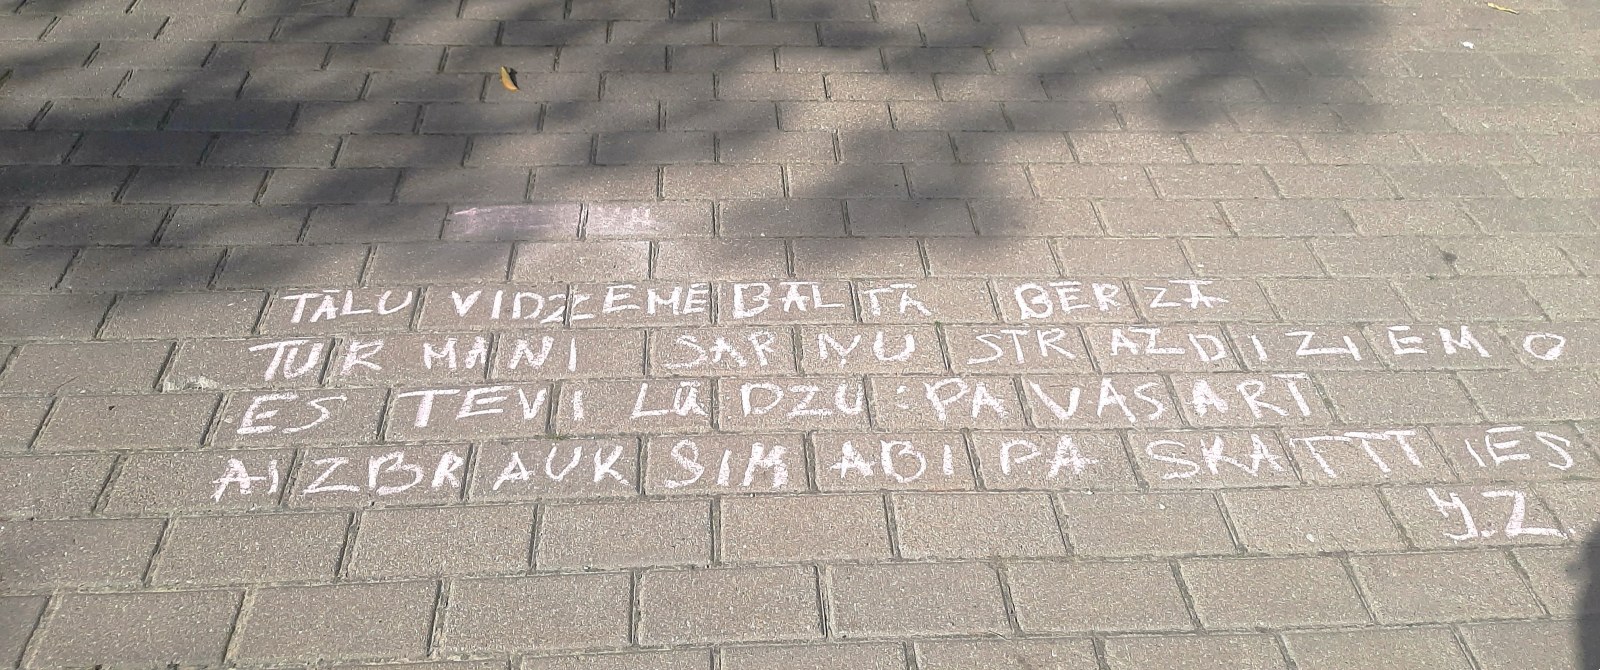 TĀLU VIDZEMĒ BĀLTĀ BĒRZĀ
TUR MANI SARŅU STRAZDI ZIEMO
ES TEVI LŪDZU: PAVASARĪ
AIZBRAUKSIM ABI PASKATĪTIES
J.Z.